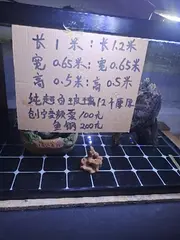 长1米：长1.2米
宽0.65米：宽0.65米
高0.5米：高0.5米
纯超白玻璃12个厘保
创宁变频泵100元
鱼钢200元